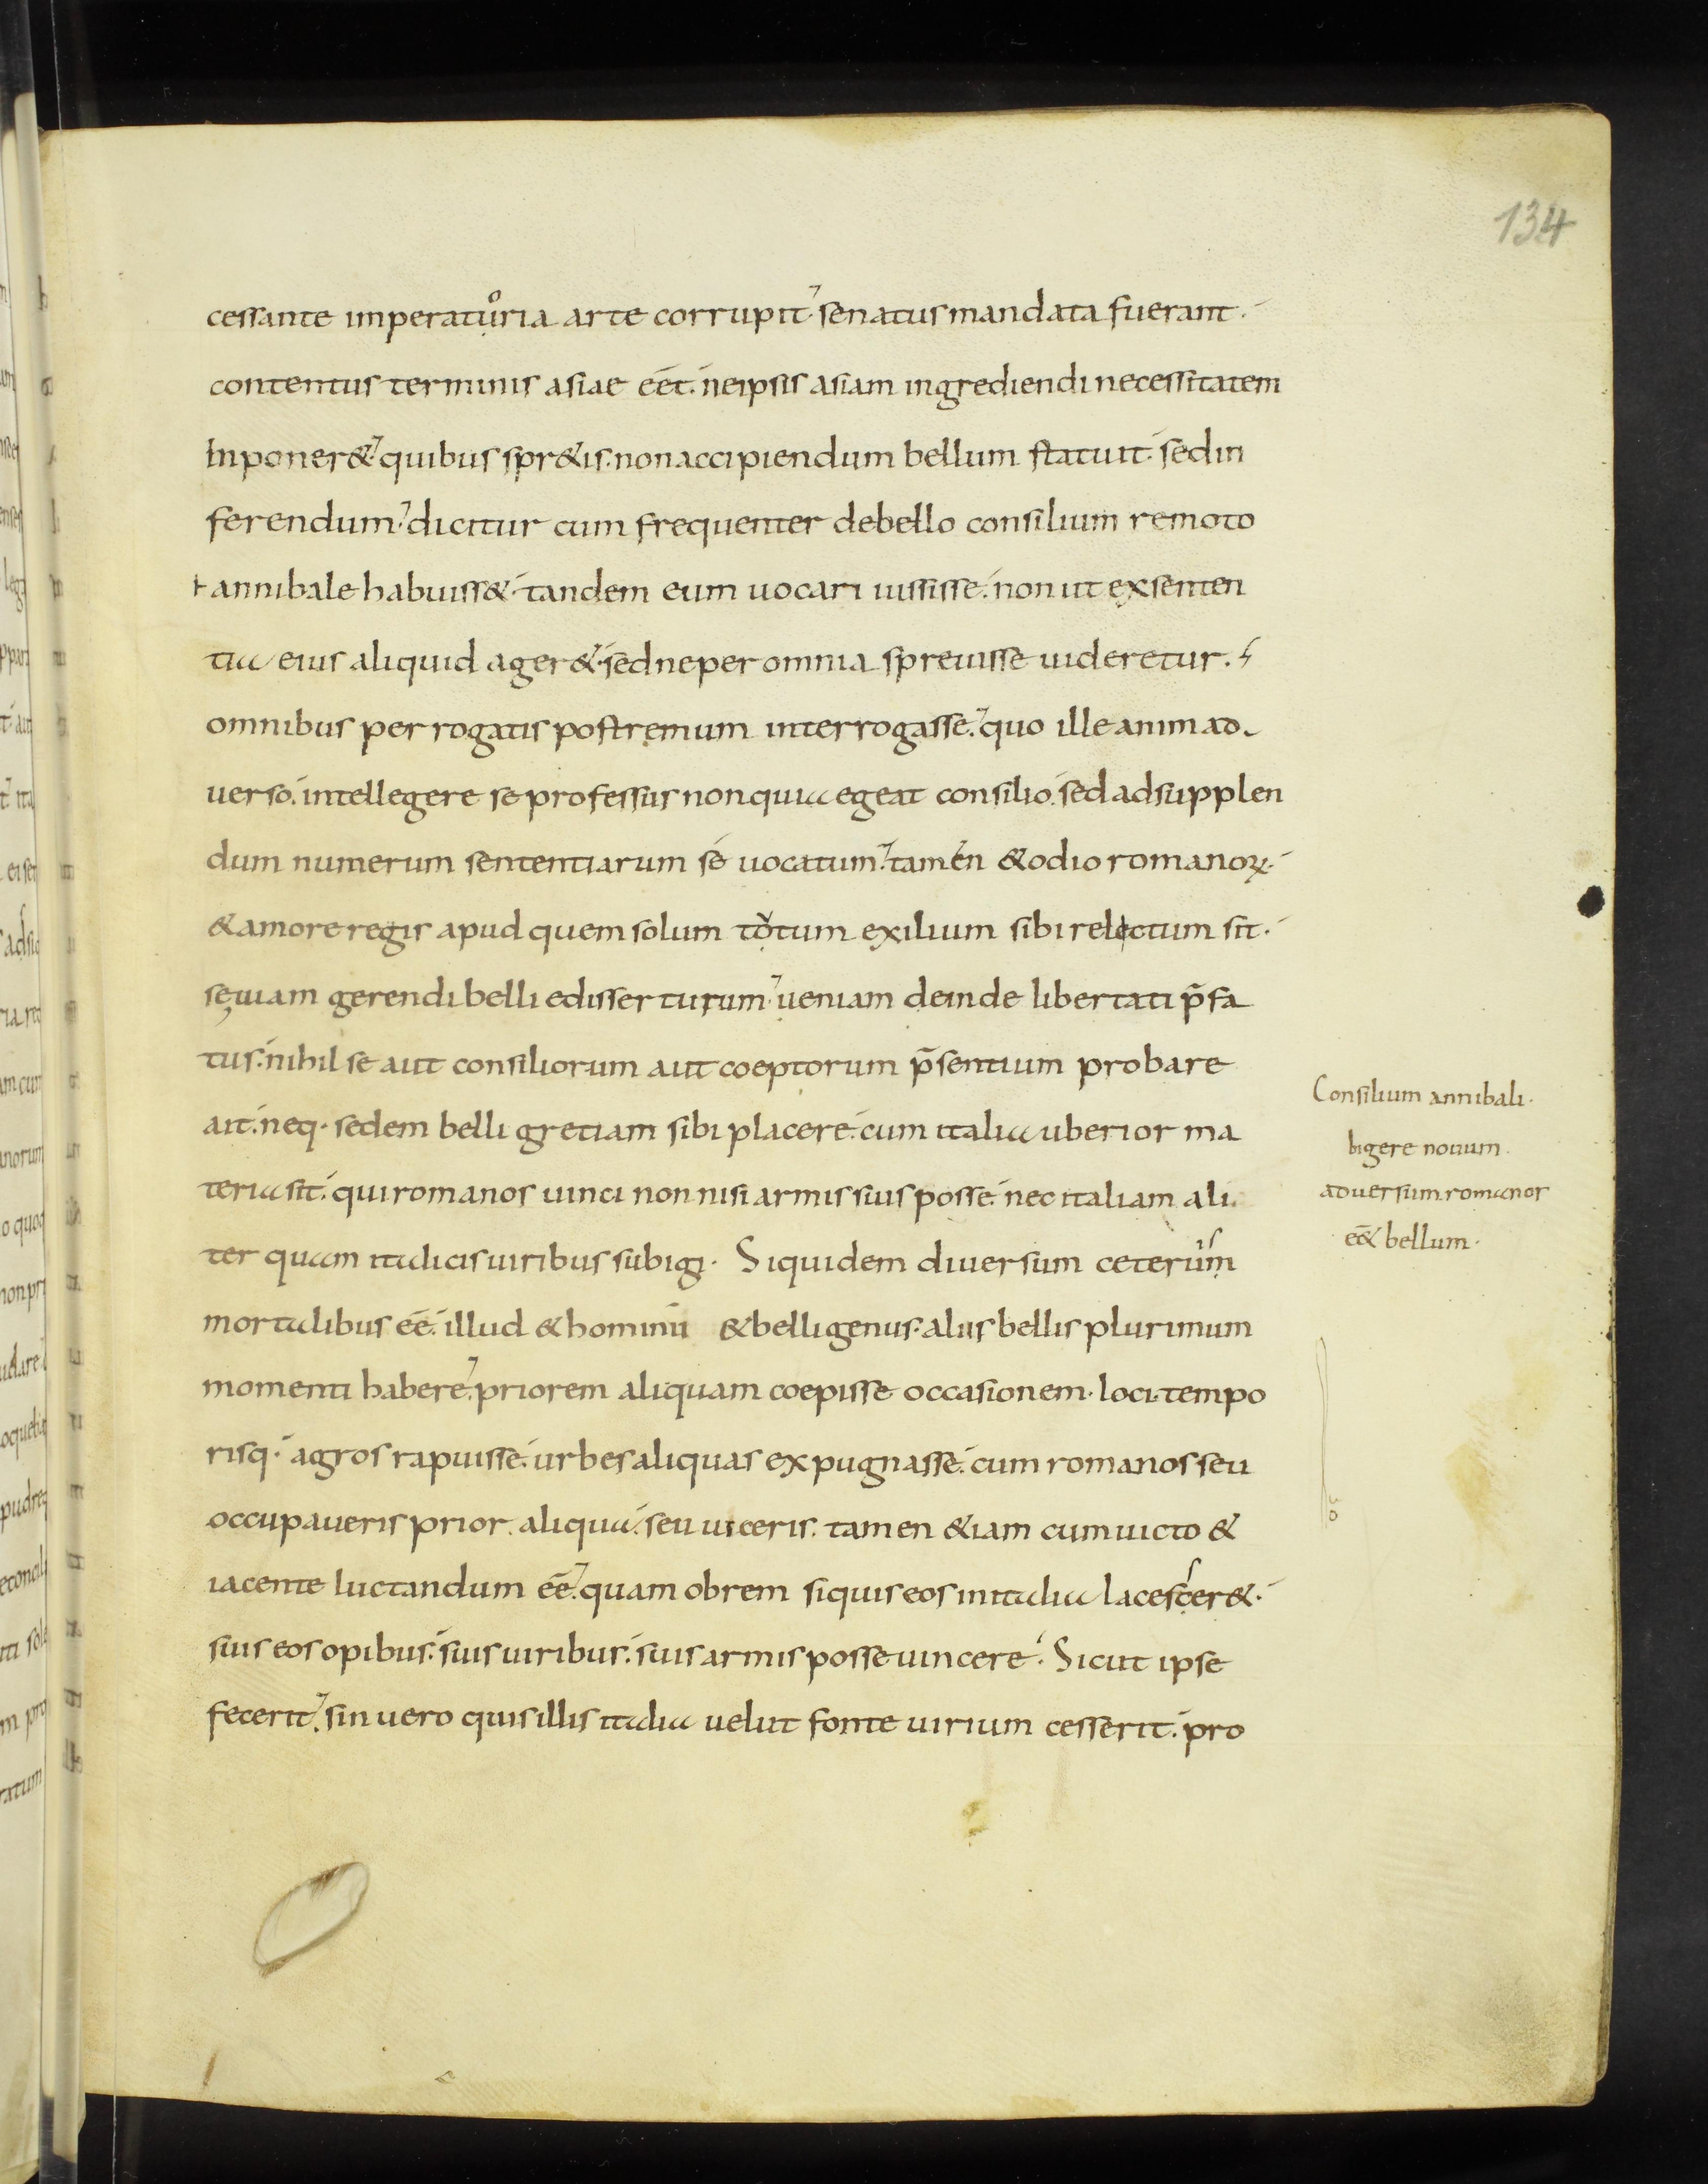 134
cessante imperatuͦria arte corrupit. senatus mandata fuerant.
contentus terminis asiae eēt. ne ipsis asiam ingrediendi necessitatem
inponer&. quibus spr&is. non accipiendum bellum statuit. sed in
ferendum. dicitur cum frequenter de bello consilium remoto
annibale habuiss&. tandem eum uocari iussisse. non ut ex senten
tia eius aliquid ager&. sed ne per omnia spreuisse uideretur.
omnibus per rogatis postremum interrogasse. quo ille animad
uerso. intellegere se professus non quia egeat consilio. sed ad supplen
dum numerum sententiarum se uocatum. tamen & odio romanoꝝ.
& amore regis apud quem solum totum exilium sibi relectum sit.
se uiam gerendi belli edisserturum. ueniam deinde libertati p̄fa
tus. nihil se aut consiliorum aut coeptorum p̄sentium probare
ait. neq· sedem belli gretiam sibi placere. cum italia uberior ma
teria sit. qui romanos uinci non nisi armis suis posse. nec italiam ali
ter quam italicis uiribus subigi. Siquidem diuersum ceterum
mortalibus eē. illud & hominū & belli genus. aliis bellis plurimum
momenti habere. priorem aliquam coepisse occasionem. loci tempo
risq· agros rapuisse. urbes aliquas expugnasse. cum romanos seu
occupaueris prior aliqua. seu uiceris. tamen &iam cum uicto &
iacente luctandum eē. quam obrem siquis eos in italia lacescer&.
suis eos opibus. suis uiribus. suis armis posse uincere. Sicut ipse
fecerit. sin uero quis illis italia uelut fonte uirium cesserit. pro
Consilium annibali.
bigere nouum.
aduersum romanos
eē& bellum.